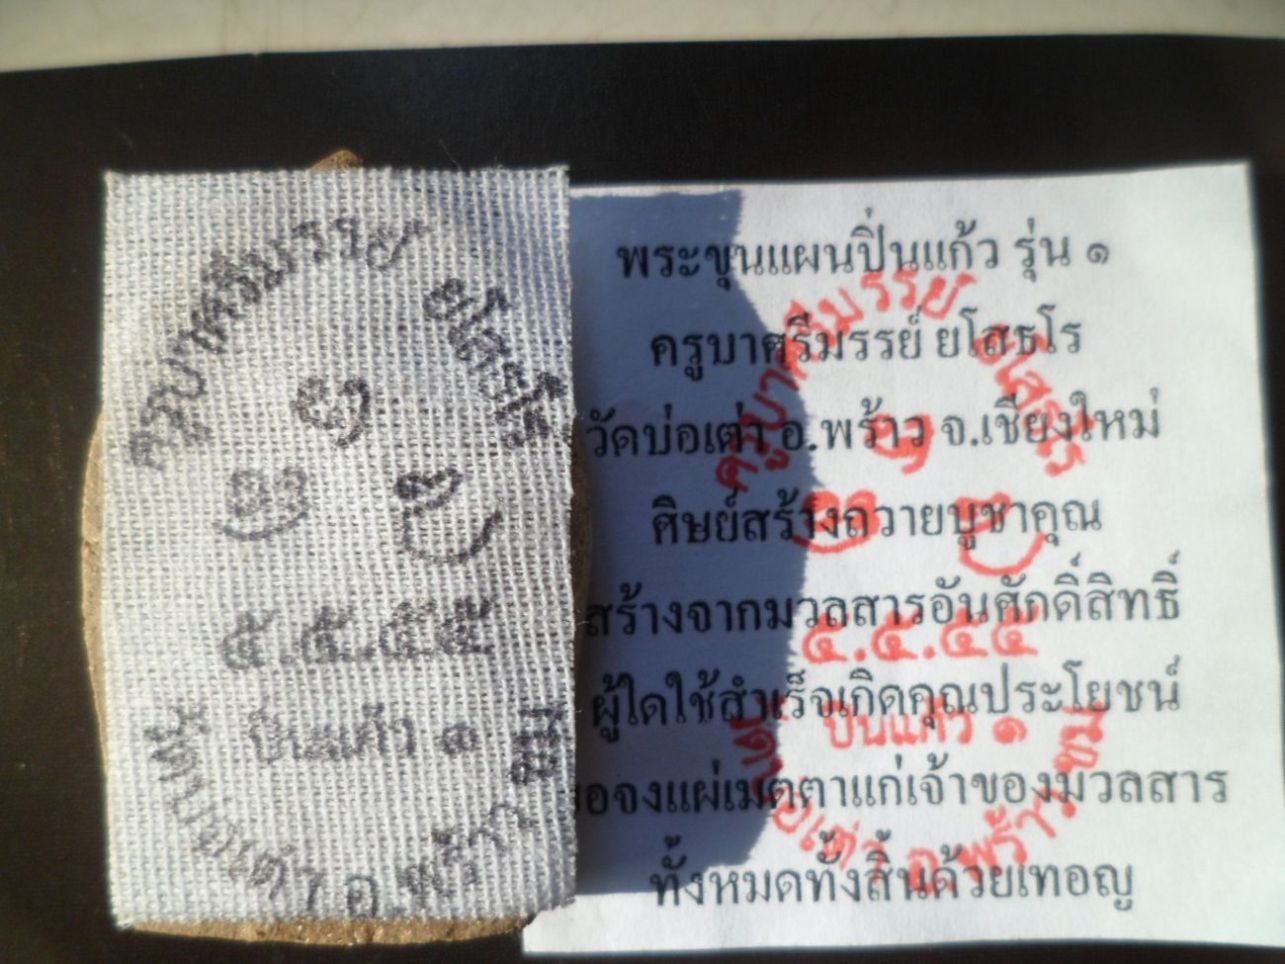 ครูบาศรีมรรย์ ยโสธโร
๕.๕.๕๕
ปิ่นแก้ว ๑
วัดบ่อเต่า อ.พร้าว ชม
พระขุนแผนปิ่นแก้ว รุ่น ๑
ครูบาศรีมรรย์ ยโสธโร
วัดบ่อเต่า อ.พร้าว จ.เชียงใหม่
ศิษย์สร้างถวายบูชาคุณ
สร้างจากมวลสารอันศักดิ์สิทธิ์
ผู้ใดใช้สำเร็จเกิดคุณประโยชน์
ขอจงแผ่เมตตาแก่เจ้าของมวลสาร
ทั้งหมดทั้งสิ้นด้วยเทอญ
ครูบาศรีมรรย์ ยโสธโร
๕.๕.๕๕
ปิ่นแก้ว ๑
วัดบ่อเต่า อ.พร้าว ชม